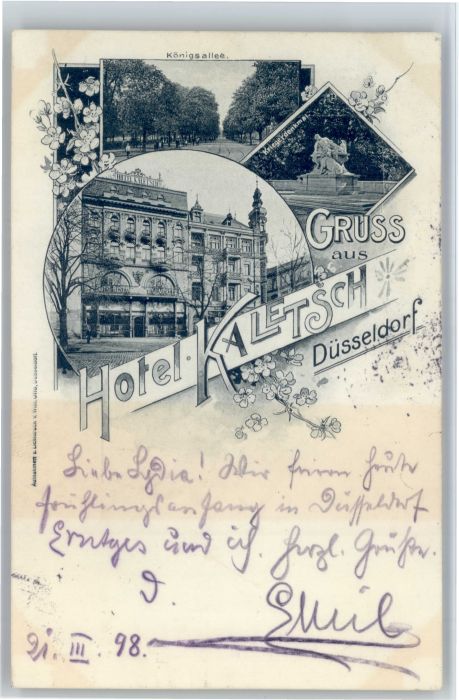 Königsallee.
Kriegerdenkmal.
GRUSS
aus
Hotel · KALLETSCH
Düsseldorf
Liebe Lydia! Wir feiern heute
frühlingsanfang in Düsseldorf
Erntges und ich. Herzl. Grüße.
D.
Emil
21. III. 98.